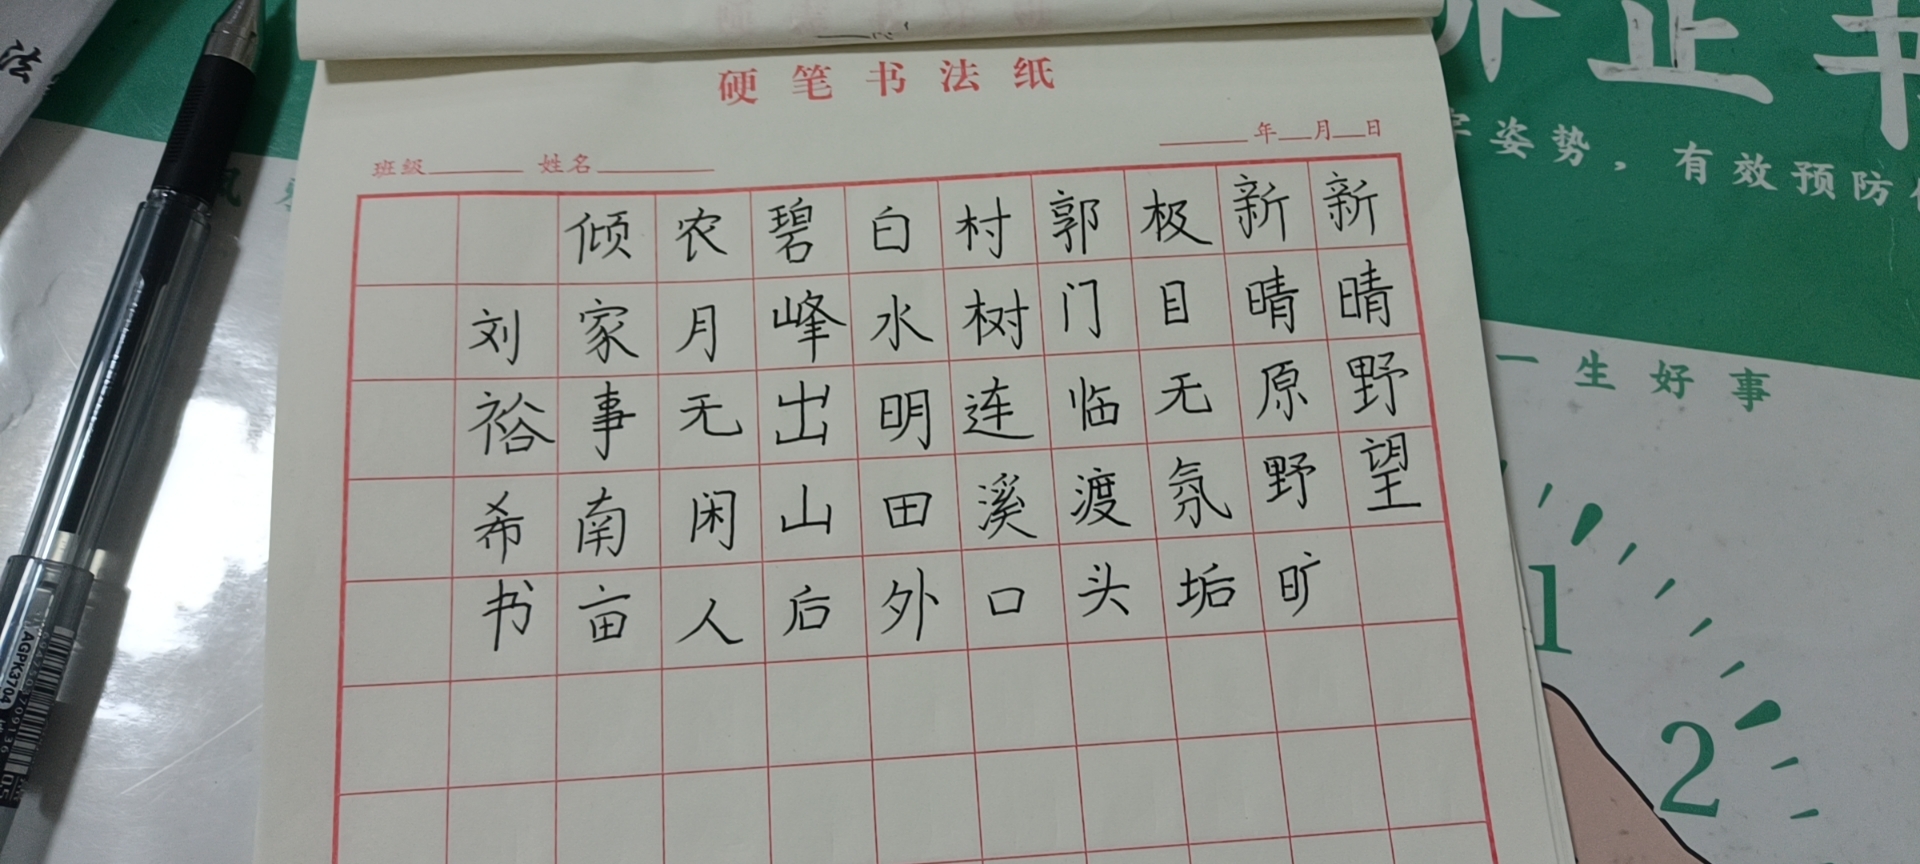 硬笔书法纸
年 月 日
班级 姓名
新晴野望
新晴原野旷
极目无氛垢
郭门临渡头
村树连溪口
白水明田外
碧峰出山后
农月无闲人
倾家事南亩
刘裕希书
正书
姿势，有效预防
一生好事
1
2
法
AGPK3704